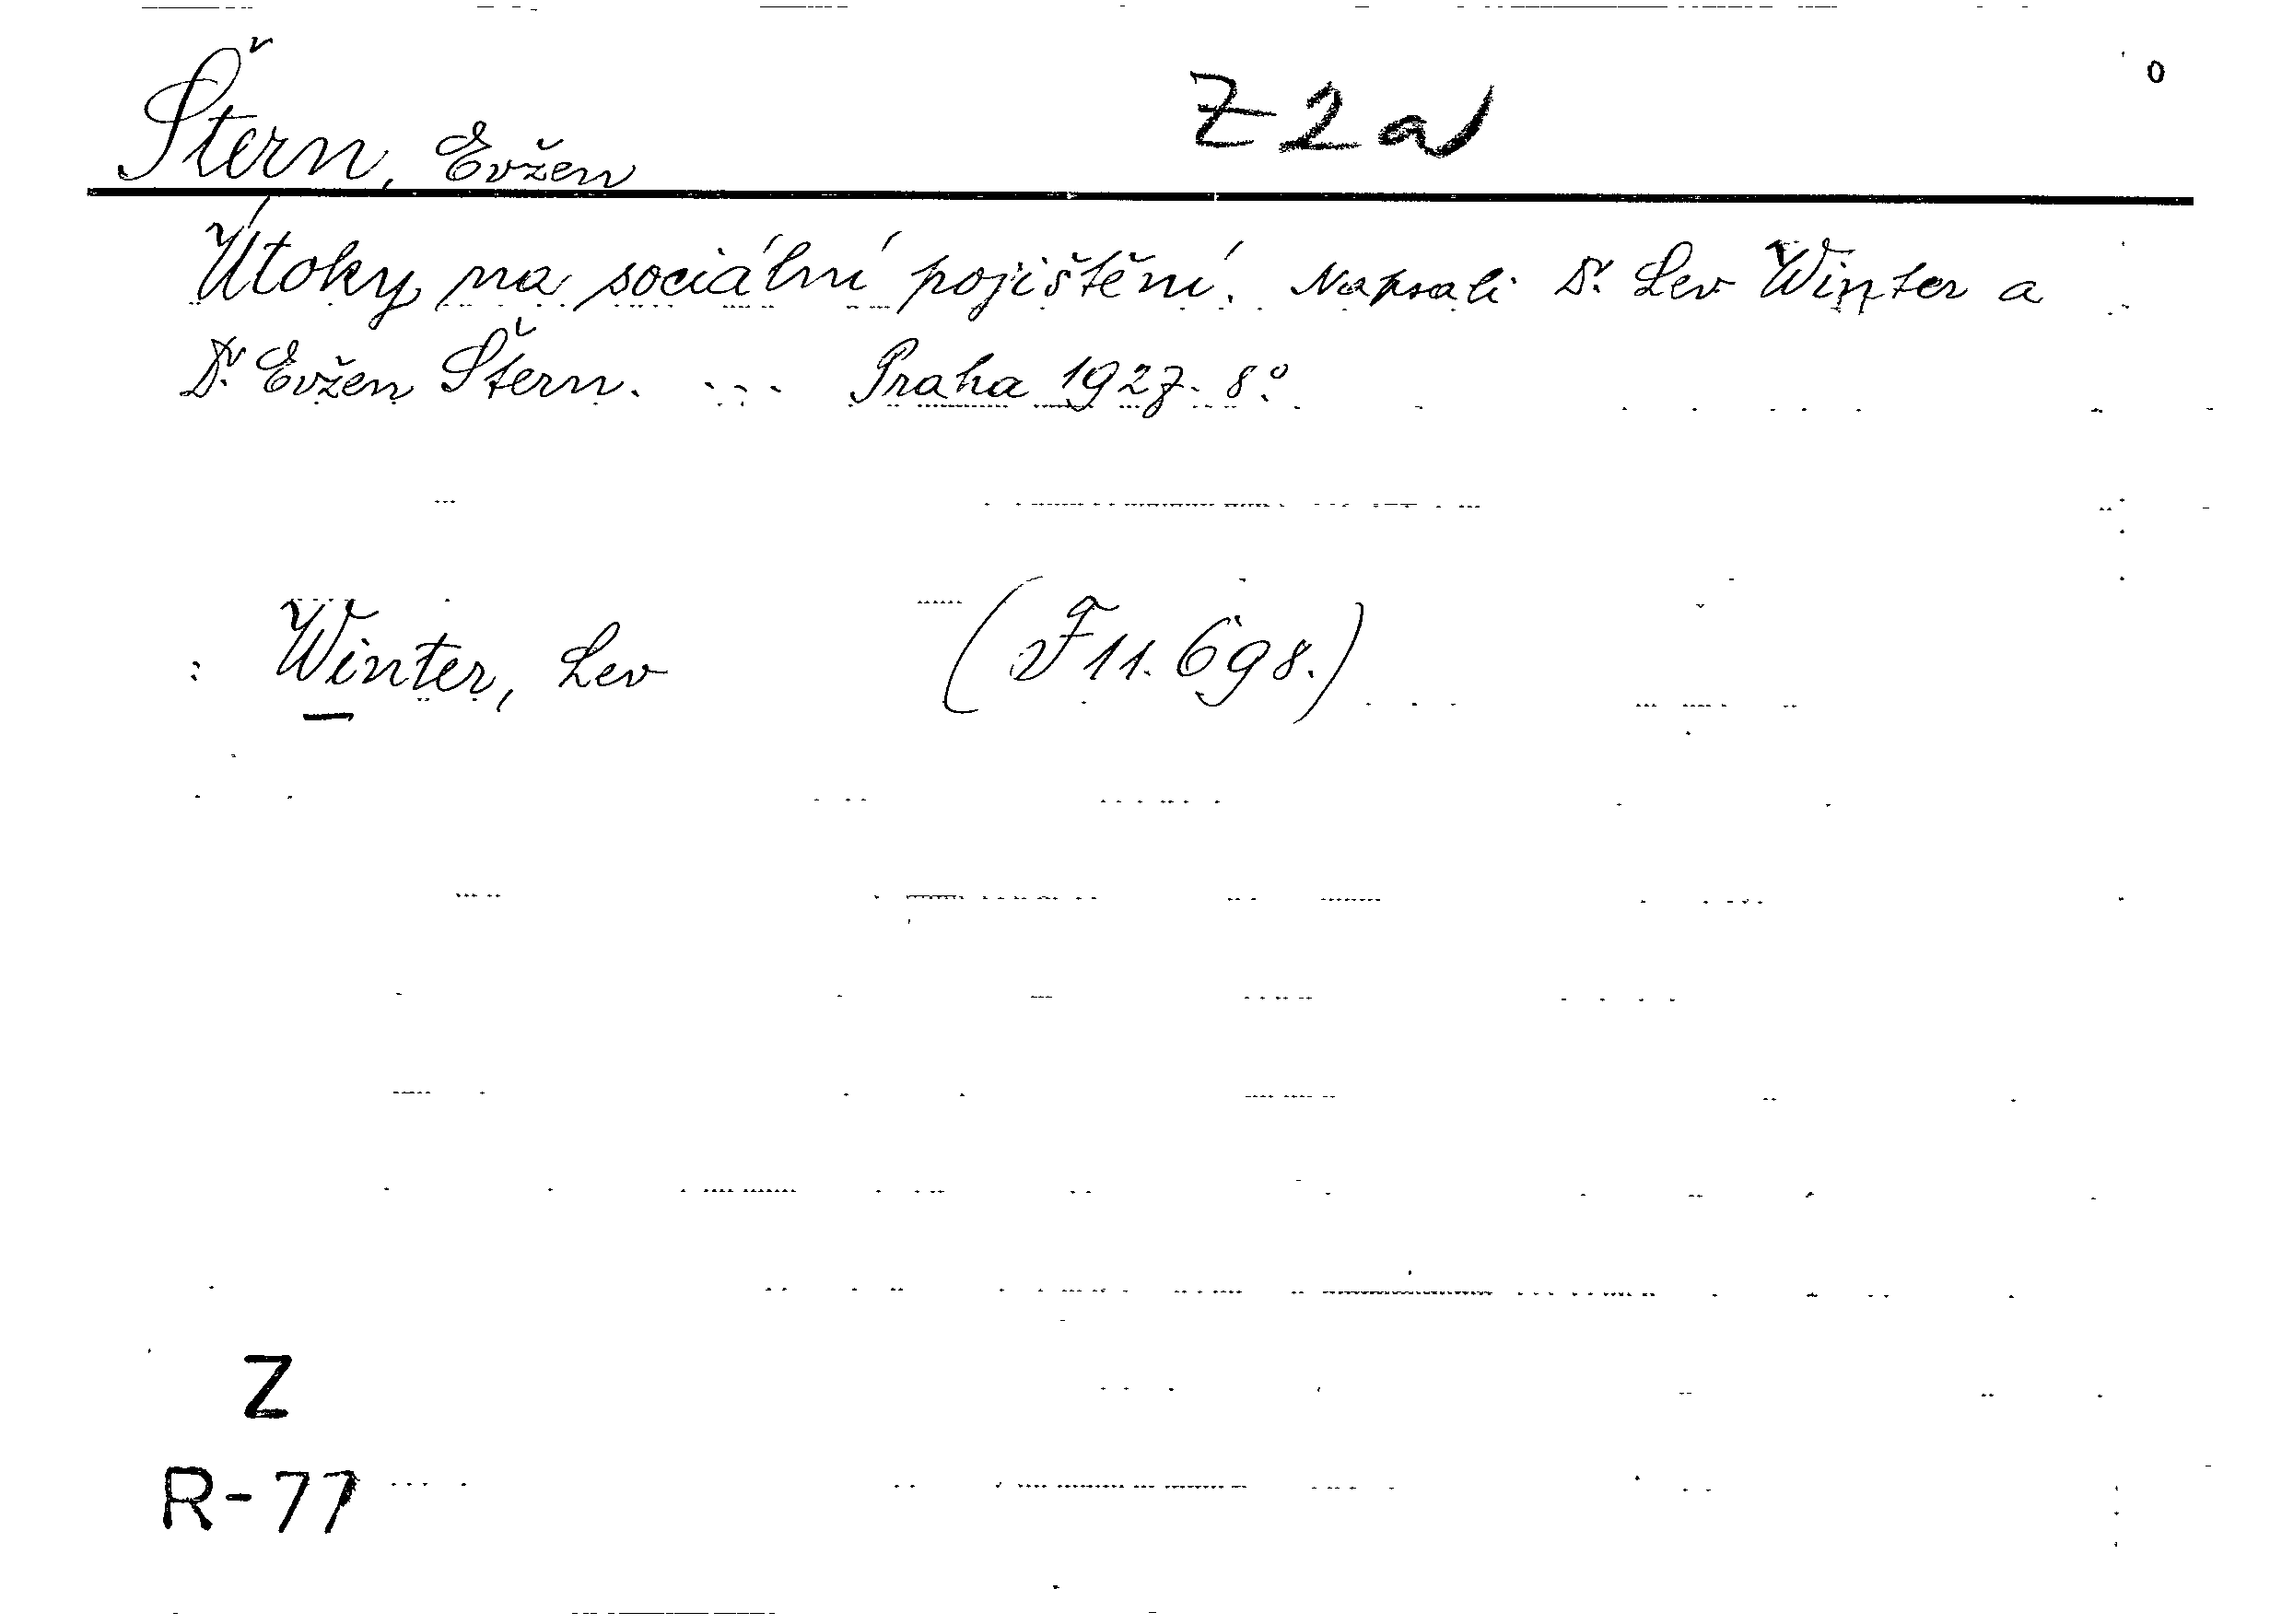 Štern, Evžen Z 2 a
Útoky na sociální pojištění. Napsali Dr. Lev Winter a
Dr. Evžen Štern. ... Praha 1927. 8°.
: Winter, Lev (F 11.698.)
Z
R-77